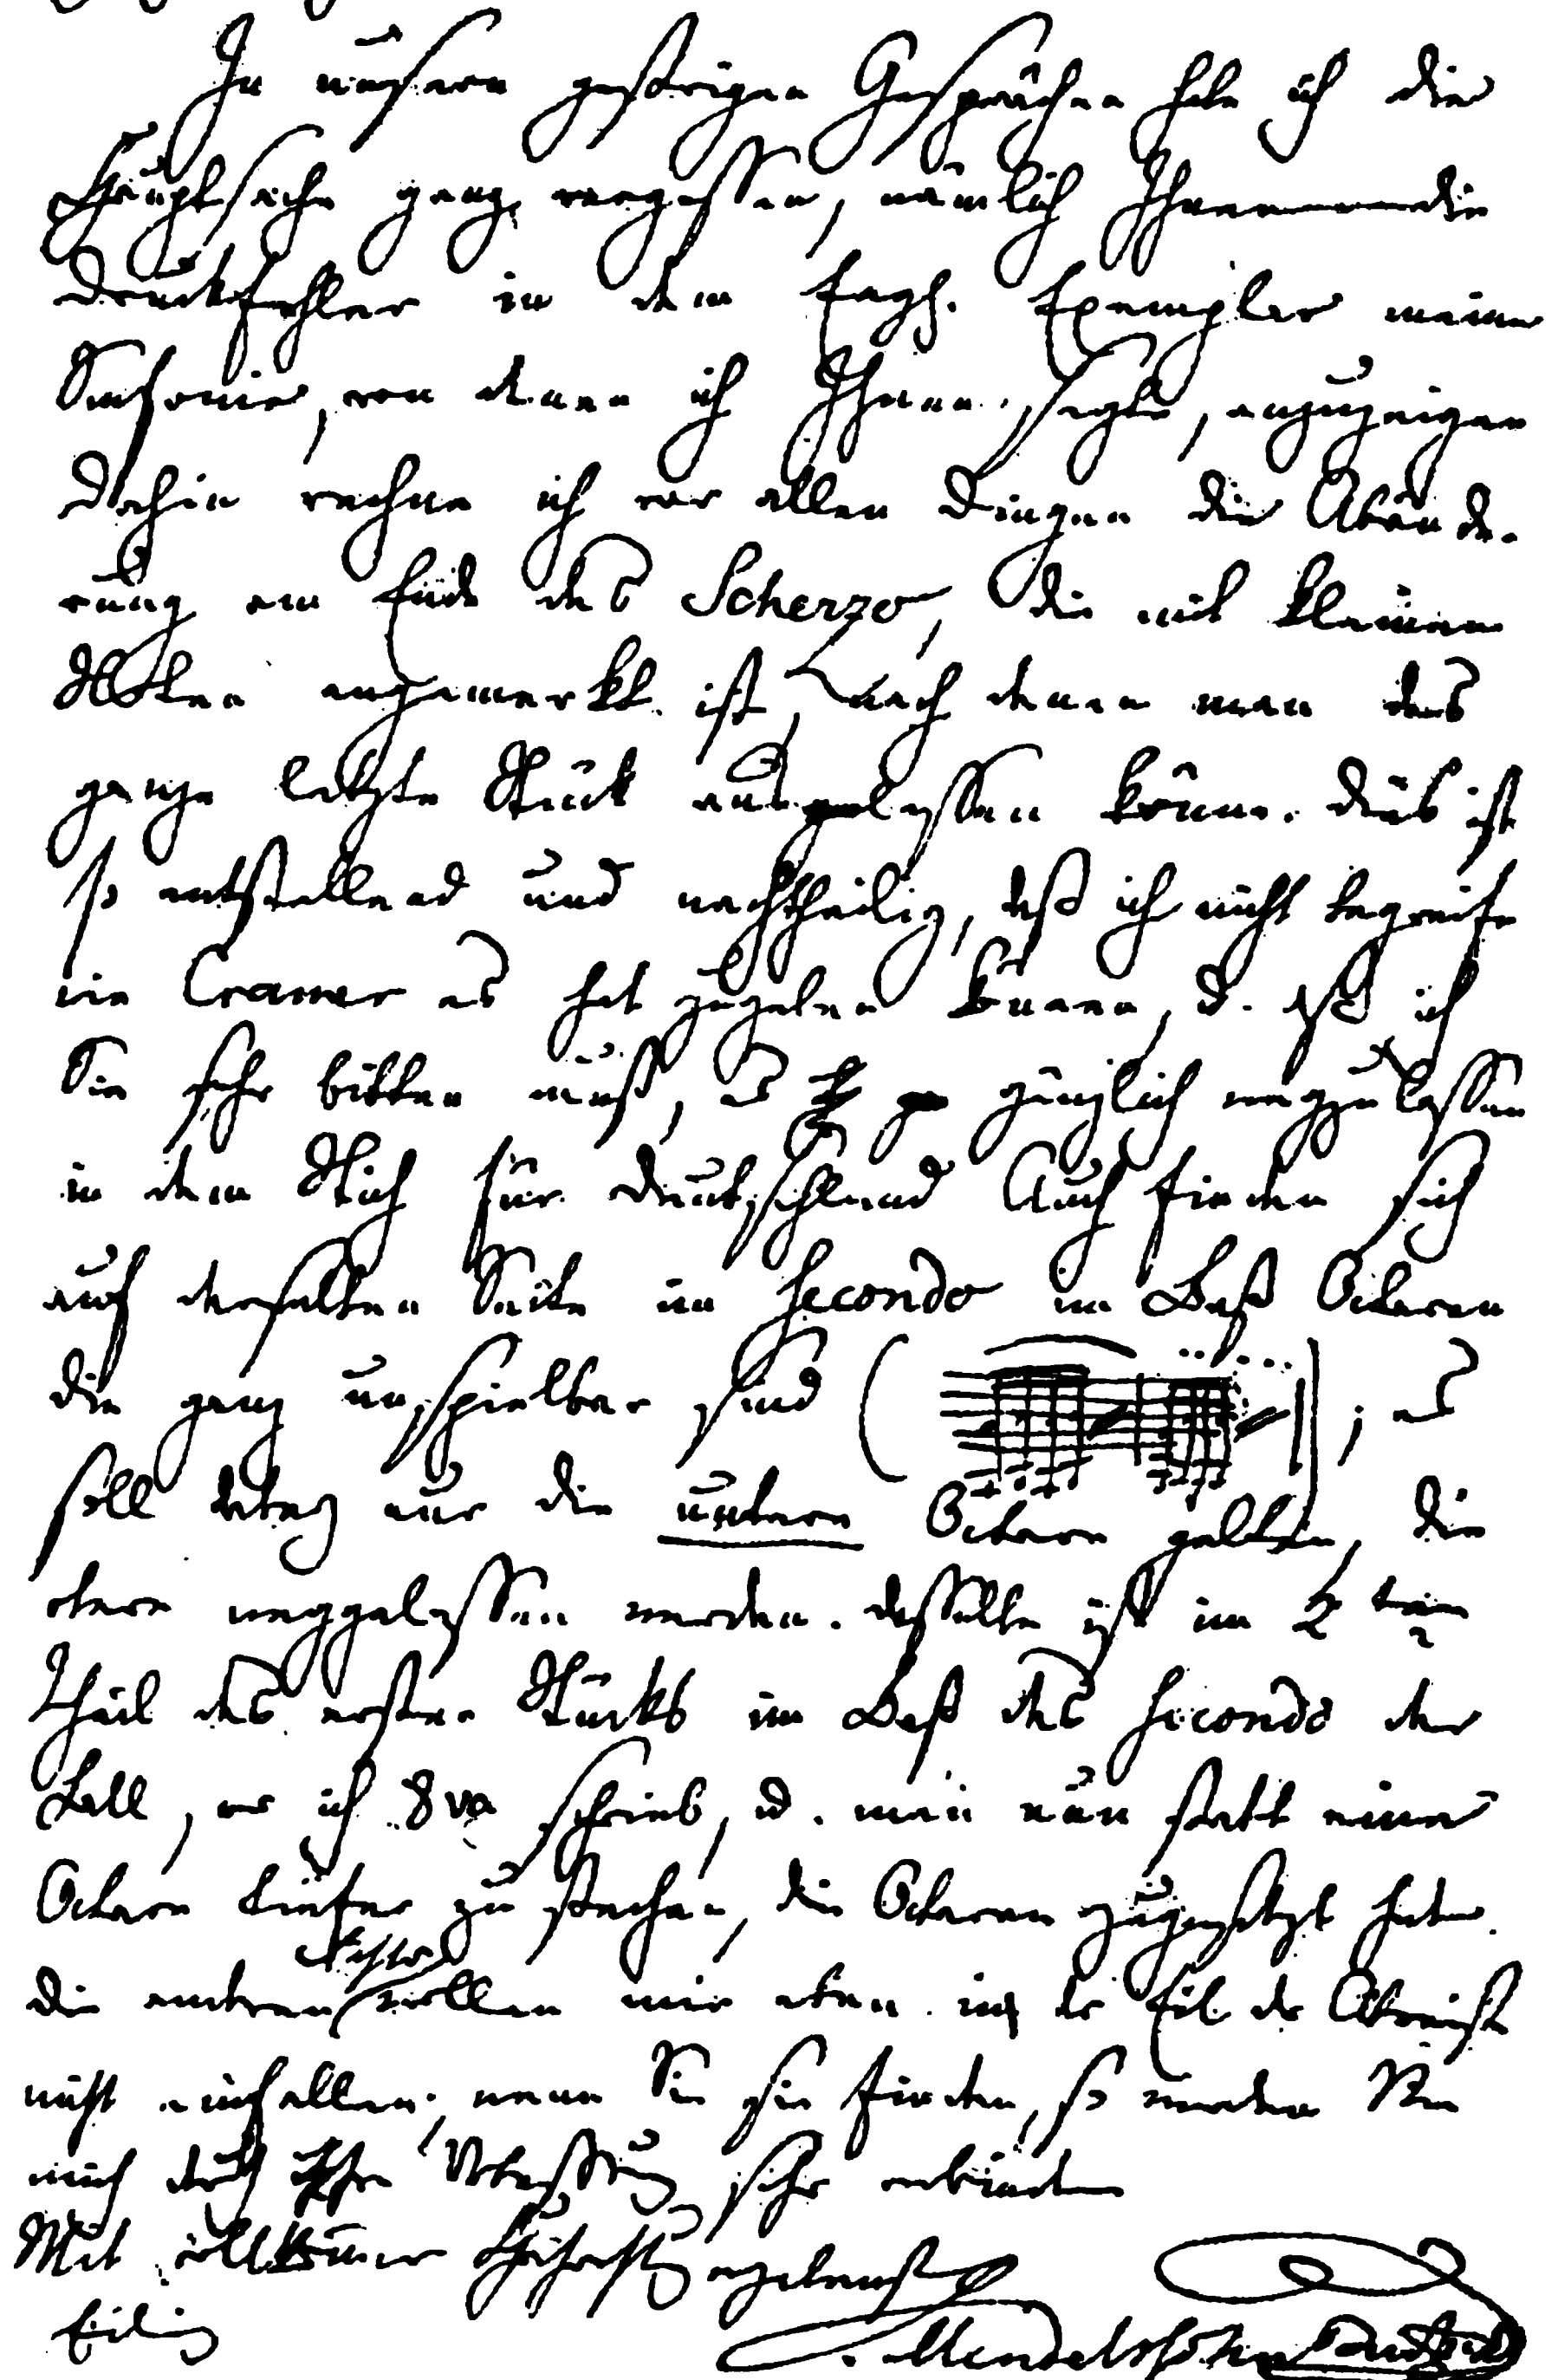 In unsern gestrigen Gesprächen habe ich die
Hauptsache ganz vergessen, nämlich Ihnen die
Druckfehler in dem Engl. Exemplar meiner
Sinfonie, von denen ich Ihnen sagte, anzuzeigen
Dahin rechne ich vor allen Dingen die Abände-
rung am Ende des Scherzo, die mit kleinen
Noten angemerkt ist, nach denen man das
ganze letzte Stück auslassen könne. Dies ist
so entstellend und nachtheilig, daß ich nicht begreife
wie Cramer es hat zugeben können, u. daß ich
Sie sehr bitten muß, es gänzlich wegzulassen
in dem Stich für Deutschland Auch finden sich
auf derselben Seite im Secondo im Baß Octaven
die ganz unspielbar sind ( ); es
soll nur die untere Octave gelten, die
obere weggelassen werden. Dasselbe ist im 2ten
Theil des ersten Stücks im Baß des Secondo der
Fall, wo ich 8va schrieb, u. man nun statt eine
Octave tiefer zu stechen, die Octaven zugesetzt hat.
Die anderen Fehler wollen mir eben in der Eil der Abreise
nicht einfallen; wenn Sie sie finden, so werden Sie
mich durch ihre Verbesserung sehr verbinden
Mit vollkommner Hochachtung ergebenst
Eilig
F. Mendelssohn Bartholdy